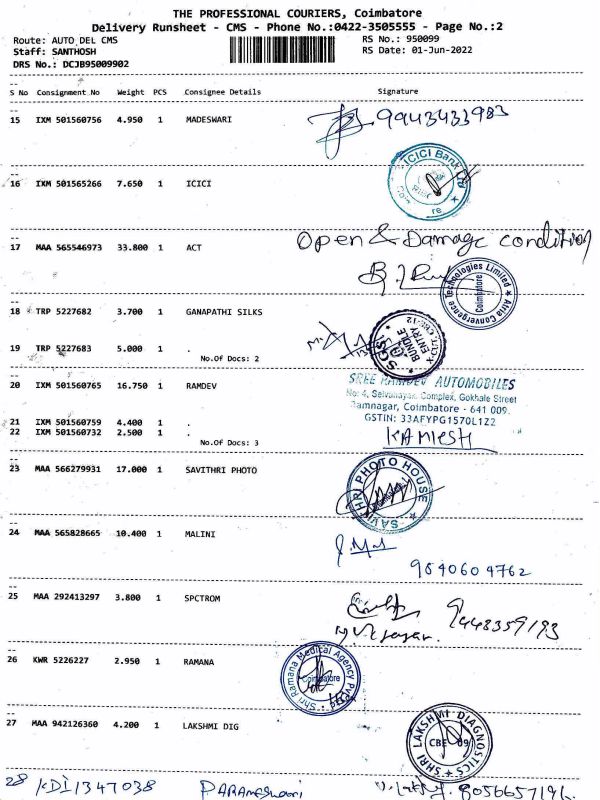 THE PROFESSIONAL COURIERS, Coimbatore
Delivery Runsheet - CMS - Phone No.:0422-3505555 - Page No.:2
Route: AUTO DEL CMS
RS No.: 950099
Staff: SANTHOSH
RS Date: 01-Jun-2022
DRS No.: DCJB95009902
S No Consignment No Weight PCS Consignee Details Signature
15 IXM 501560756 4.950 1 MADESWARI
9943433983
16 IXM 501565266 7.650 1 ICICI
ICICI Bank Ltd
17 MAA 565546973 33.800 1 ACT
Open & Damage condition
Atria Convergence Technologies Limited
Coimbatore
18 TRP 5227682 3.700 1 GANAPATHI SILKS
19 TRP 5227683 5.000 1 .
No.Of Docs: 2
SGSI
BUNDLE
ENTRY
20 IXM 501560765 16.750 1 RAMDEV
SREE RAMDEV AUTOMOBILES
No: 4, Selvanayaki Complex, Gokhale Street
Ramnagar, Coimbatore - 641 009.
GSTIN: 33AFYPG1570L1Z2
21 IXM 501560759 4.400 1 .
22 IXM 501560732 2.500 1 .
No.Of Docs: 3
KAMLESH
23 MAA 566279931 17.000 1 SAVITHRI PHOTO
SAVITHRI PHOTO HOUSE
24 MAA 565828665 10.400 1 MALINI
9540604762
25 MAA 292413297 3.800 1 SPCTROM
9448359193
26 KWR 5226227 2.950 1 RAMANA
Shri Ramana Medical Agency Pvt Ltd
Coimbatore
27 MAA 942126360 4.200 1 LAKSHMI DIG
SHRI LAKSHMI DIAGNOSTICS
CBE 09
28 KDI1347038 Parameshwari 9056657196